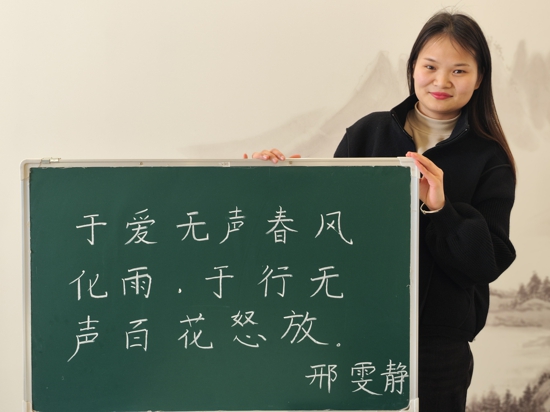 于爱无声春风
化雨.于行无
声百花怒放.
邢雯静